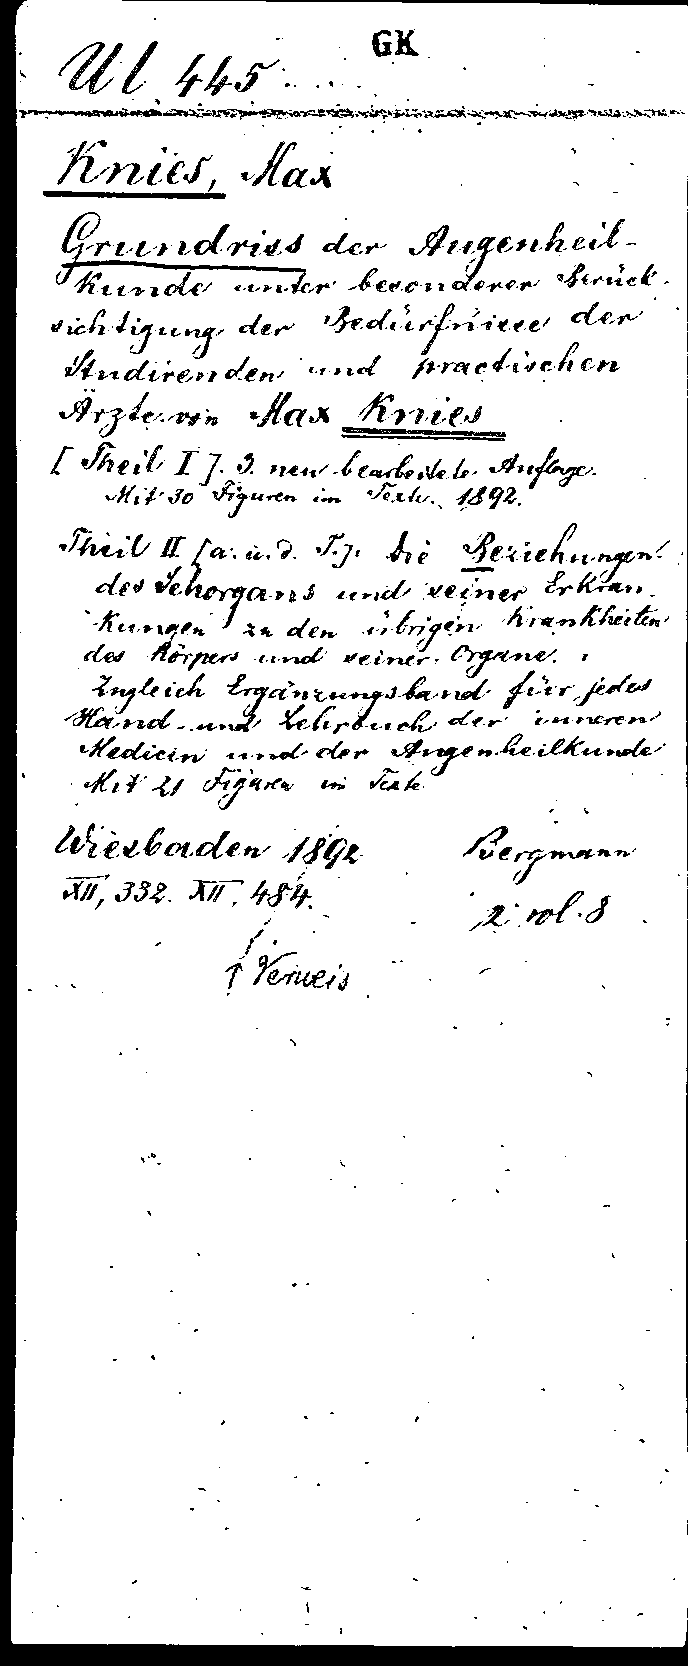 GK
Ul 445
Knies, Max
Grundriss der Augenheil-
kunde unter besonderer Berück-
sichtigung der Bedürfnisse der
Studirenden und practischen
Ärzte von Max Knies
[Theil I]. 3. neu bearbeitete Auflage.
Mit 30 Figuren im Texte. 1892.
Theil II [a. u. d. T.]. Die Beziehungen
des Sehorgans und seiner Erkran-
kungen zu den übrigen Krankheiten
des Körpers und seiner Organe.
Zugleich Ergänzungsband für jedes
Hand- und Lehrbuch der inneren
Medicin und der Augenheilkunde
Mit 21 Figuren im Texte
Wiesbaden 1892 Bergmann
XII, 332. XII, 484.
2 vol. 8
↑ Verweis